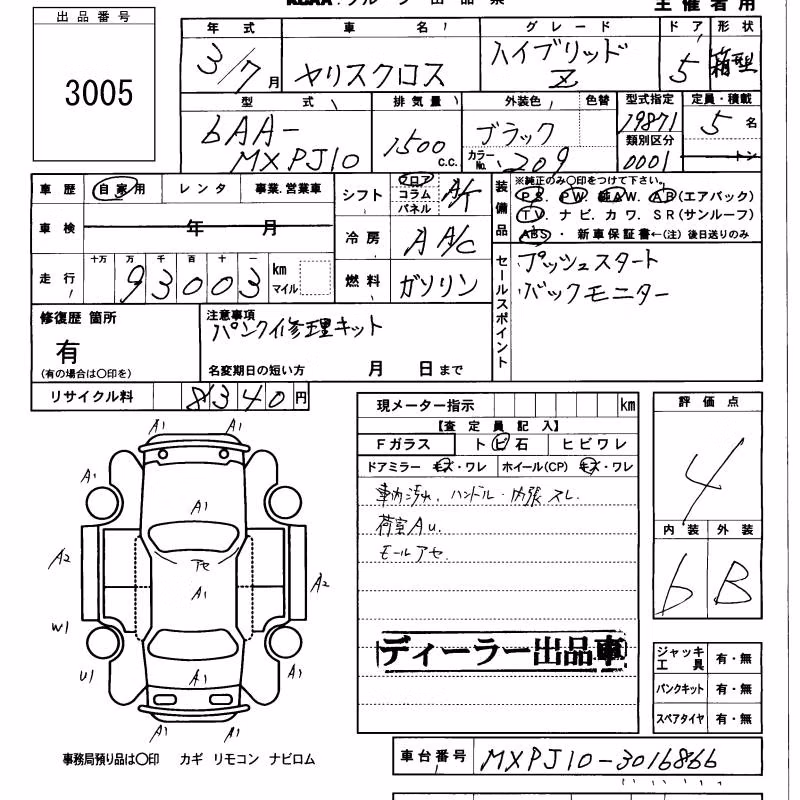 出品番号
3005
主催者用
年式 車名 グレード ドア 形状
3/7月 ヤリスクロス ハイブリッド Z 5 箱型
型式 排気量 外装色 色替 型式指定 定員・積載
6AA-MXPJ10 1500 c.c. ブラック カラーNo. 209 19871 類別区分 0001 5名 トン
車歴 自家用 レンタ 事業.営業車
シフト フロア コラム パネル A/T
装備品 ※純正のみ〇印をつけて下さい。
PS. PW. 純AW. AB(エアバック)
TV. ナビ. カワ. SR(サンルーフ)
ABS・ 新車保証書←(注) 後日送りのみ
車検 年 月
冷房 A A/C
走行 十万 万 千 百 十 一
93003 km マイル
燃料 ガソリン
セールスポイント
プッシュスタート
バックモニター
修復歴 箇所
有
(有の場合は〇印を)
注意事項
パンク修理キット
名変期日の短い方 月 日まで
リサイクル料 8340円
現メーター指示 km
【査定員記入】
Fガラス トビ石 ヒビワレ
ドアミラー キズ・ワレ ホイール(CP) キズ・ワレ
車内汚れ. ハンドル・内張スレ.
荷室AU.
モールアセ.
ディーラー出品車
評価点
4
内装 外装
6 B
ジャッキ工具 有・無
パンクキット 有・無
スペアタイヤ 有・無
A1 A1
A1
A1
A2
アセ
A1
A2
W1
U1
A1
A1
A1 A1
事務局預り品は〇印 カギ リモコン ナビロム
車台番号 MXPJ10-3016866